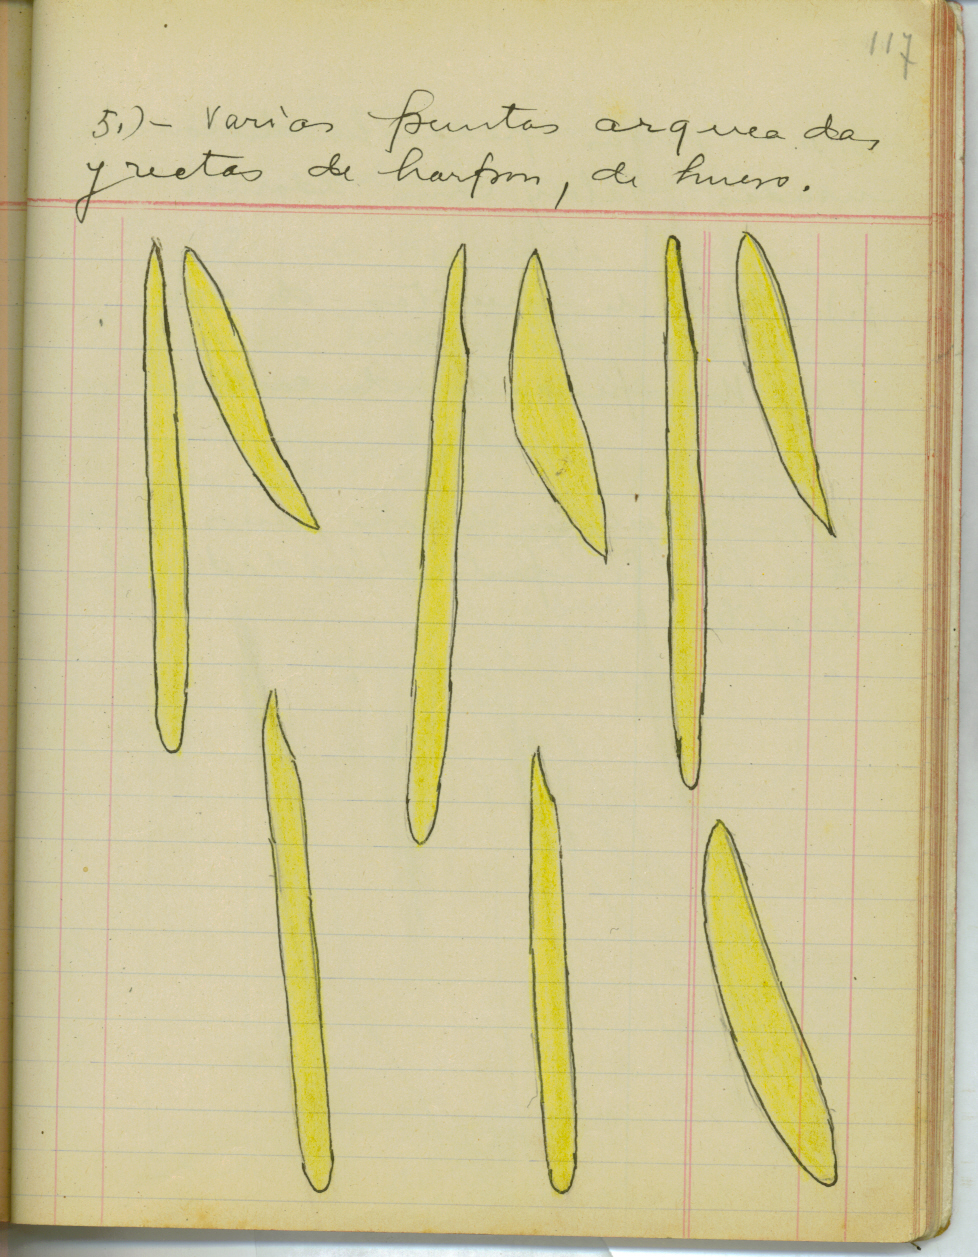 117
5.)- Varias puntas arqueadas
y rectas de harpon, de hueso.